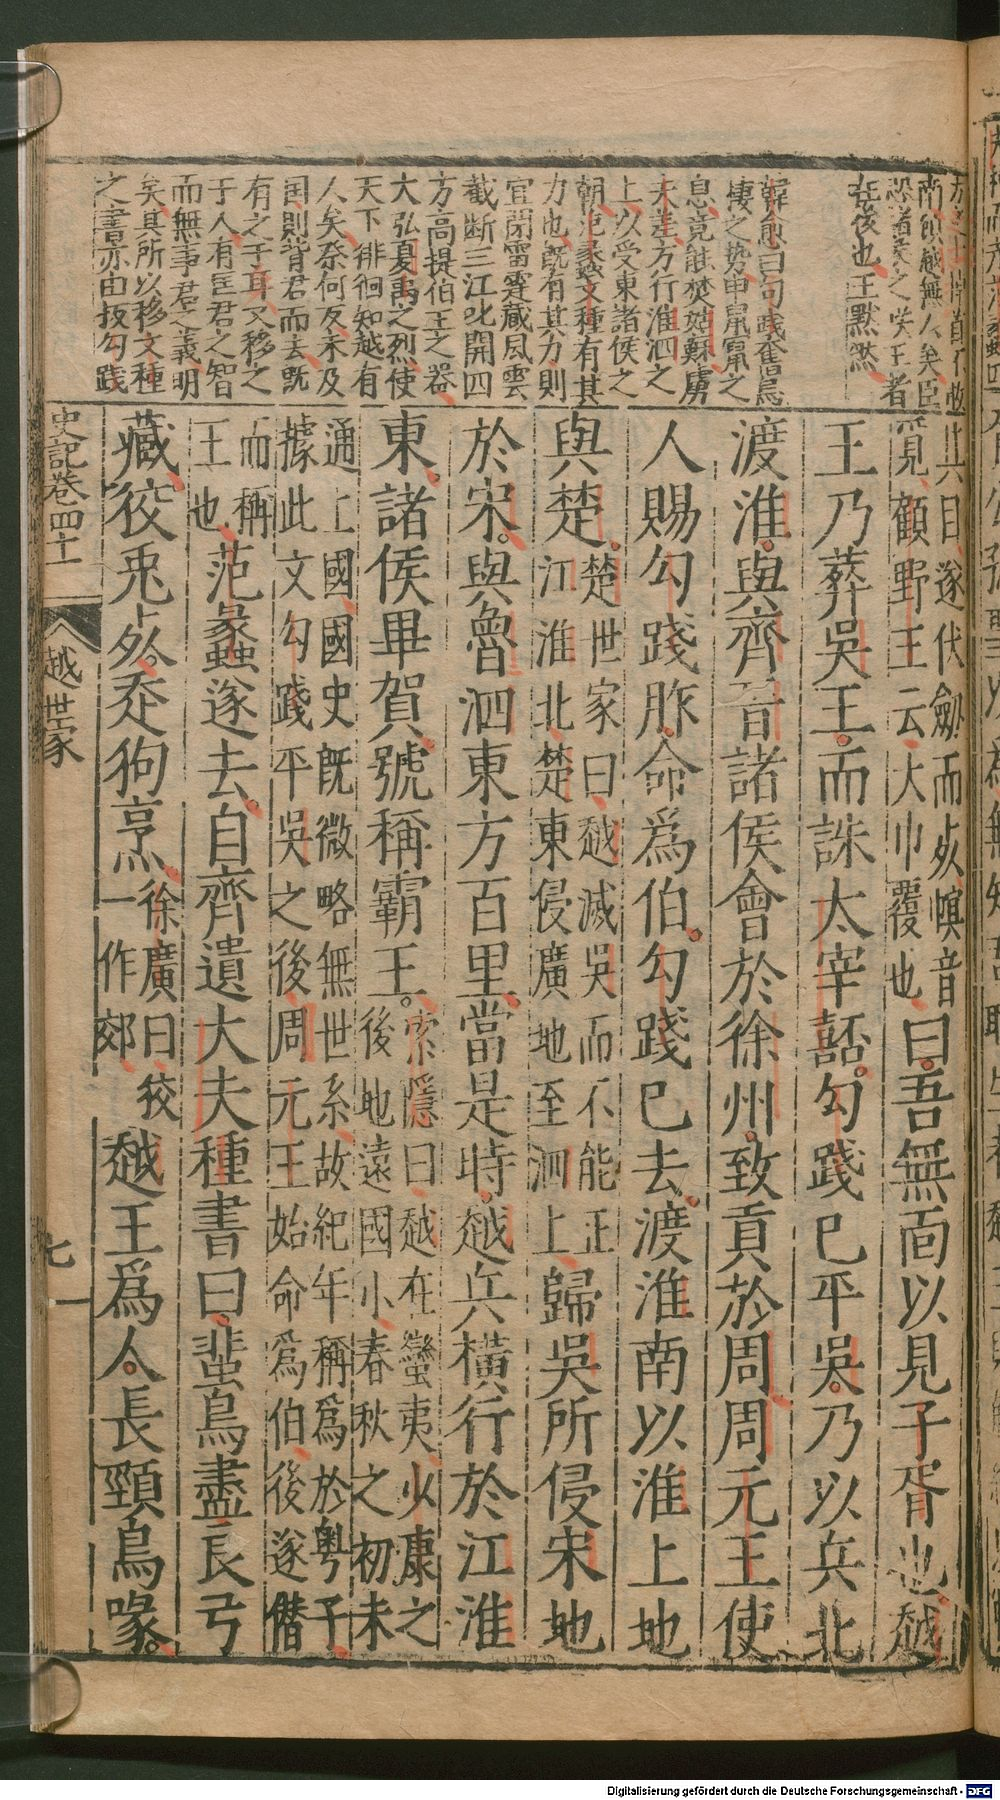 南傾越無人矣臣
恐諸矦之咲王者
在後也王默然
韓愈曰句踐奮鳥
棲之勢申鼠竄之
息竟能焚姑蘇虜
夫差方行淮泗之
上以受東諸侯之
朝范蠡文種有其
力也既有其力則
宜閉雷霆藏風雲
截斷三江叱開四
方高提伯王之器
大弘夏禹之烈使
天下徘徊知越有
人矣奈何反未及
國則背君而去既
有之于耳又移之
于人有匡君之智
而無事君之義明
矣其所以移文種
之書亦由扳勾踐
其目遂伏劍而死幎音
覓顧野王云大巾覆也曰吾無面以見子胥也越
王乃葬吳王而誅太宰嚭勾踐已平吳乃以兵北
渡淮與齊晉諸侯會於徐州致貢於周周元王使
人賜勾踐胙命爲伯勾踐已去渡淮南以淮上地
與楚楚世家曰越滅吳而不能正
江淮北楚東侵廣地至泗上歸吳所侵宋地
於宋與魯泗東方百里當是時越兵橫行於江淮
東諸侯畢賀號稱霸王索隱曰越在蠻夷少康之
後地遠國小春秋之初未
通上國國史既微略無世系故紀年稱爲於粵子
據此文勾踐平吳之後周元王始命爲伯後遂僭
而稱
王也范蠡遂去自齊遺大夫種書曰蜚鳥盡良弓
藏狡兎死走狗烹徐廣曰狡
一作郊越王爲人長頸鳥喙
史記卷四十一
越世家
七
Digitalisierung gefördert durch die Deutsche Forschungsgemeinschaft - DFG